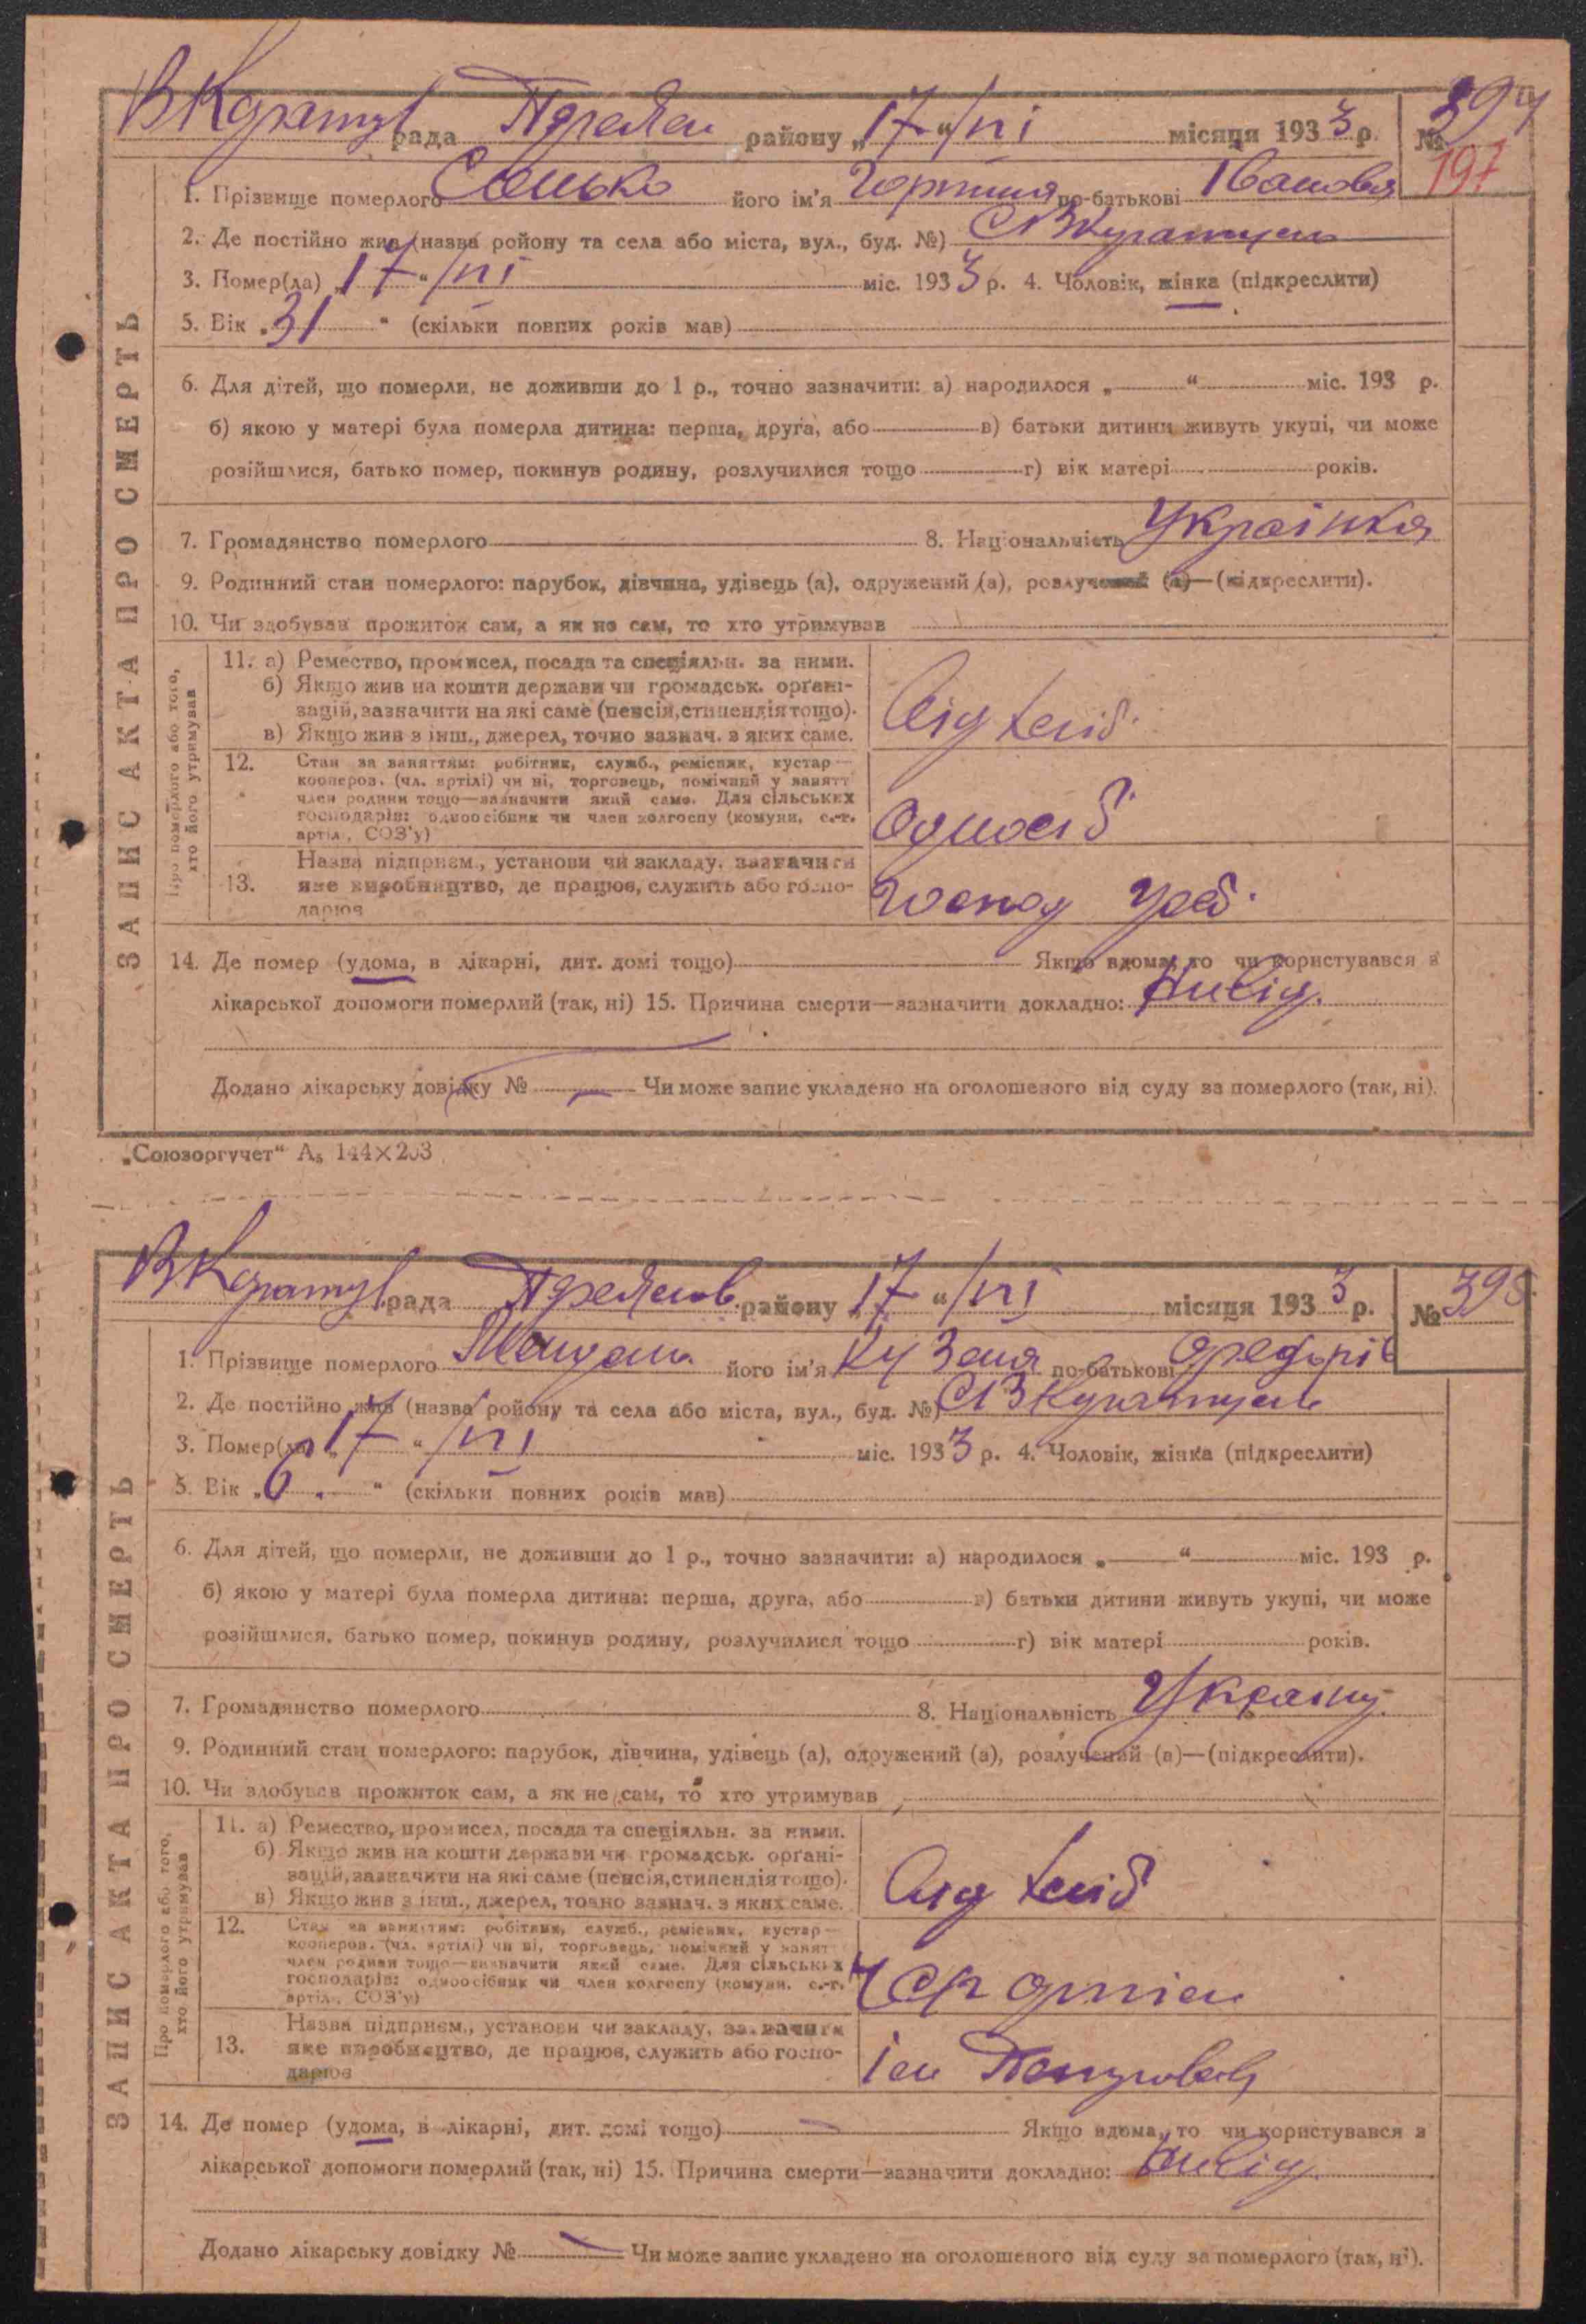 ВКаратул рада Переяслав району „17“ /VI місяця 1933 р. № 394
197
ЗАПИС АКТА ПРО СМЕРТЬ
1. Прізвище померлого Сонько його ім'я Горпина по-батькові Івановна
2. Де постійно жив (назва ройону та села або міста, вул., буд. №) С ВКаратуль
3. Помер(ла) „17“ /VI міс. 1933 р. 4. Чоловік, жінка (підкреслити)
5. Вік „31“ (скільки повних років мав)
6. Для дітей, що померли, не доживши до 1 р., точно зазначити: а) народилося „ “ міс. 193 р.
б) якою у матері була померла дитина: перша, друга, або в) батьки дитини живуть укупі, чи може
розійшлися, батько помер, покинув родину, розлучилися тощо г) вік матері років.
7. Громадянство померлого 8. Національність Українка
9. Родинний стан померлого: парубок, дівчина, удівець (а), одружений (а), розлучений (а)—(підкреслити).
10. Чи здобував прожиток сам, а як не сам, то хто утримував
Про померлого або того, хто його утримував
11. а) Ремество, промисел, посада та спеціяльн. за ними.
б) Якщо жив на кошти держави чи громадськ. органі-
зацій, зазначити на які саме (пенсія, стипендія тощо).
в) Якщо жив з інш., джерел, точно зазнач. з яких саме.
12. Стан за заняттям: робітник, служб., ремісник, кустар—
кооперов. (чл. артілі) чи ні, торговець, помічний у занятт
член родини тощо—зазначити який саме. Для сільських
господарів: одноосібник чи член колгоспу (комуни, с.-г.
артіл., СОЗ'у)
Одноосіб
Назва підприєм., установи чи закладу, зазначити
13. яке виробництво, де працює, служить або госпо-
дарює
Господ
14. Де помер (удома, в лікарні, дит. домі тощо) Якщо вдома, то чи користувався з
лікарської допомоги померлий (так, ні) 15. Причина смерти—зазначити докладно:
Додано лікарську довідку № — Чи може запис укладено на оголошеного від суду за померлого (так, ні).
„Союзоргучет“ А₅ 144×203
ВКаратул рада Переяслов району „17“ /VI місяця 1933 р. № 395
ЗАПИС АКТА ПРО СМЕРТЬ
1. Прізвище померлого його ім'я по-батькові
2. Де постійно жив (назва ройону та села або міста, вул., буд. №) С ВКаратуль
3. Помер(ла) „17“ /VI міс. 1933 р. 4. Чоловік, жінка (підкреслити)
5. Вік „6“ (скільки повних років мав)
6. Для дітей, що померли, не доживши до 1 р., точно зазначити: а) народилося „ “ міс. 193 р.
б) якою у матері була померла дитина: перша, друга, або в) батьки дитини живуть укупі, чи може
розійшлися, батько помер, покинув родину, розлучилися тощо г) вік матері років.
7. Громадянство померлого 8. Національність Українц
9. Родинний стан померлого: парубок, дівчина, удівець (а), одружений (а), розлучений (а)—(підкреслити).
10. Чи здобував прожиток сам, а як не сам, то хто утримував
Про померлого або того, хто його утримував
11. а) Ремество, промисел, посада та спеціяльн. за ними.
б) Якщо жив на кошти держави чи громадськ. органі-
зацій, зазначити на які саме (пенсія, стипендія тощо).
в) Якщо жив з інш., джерел, точно зазнач. з яких саме.
12. Стан за заняттям: робітник, служб., ремісник, кустар—
кооперов. (чл. артілі) чи ні, торговець, помічний у занятт
член родини тощо—зазначити який саме. Для сільських
господарів: одноосібник чи член колгоспу (комуни, с.-г.
артіл., СОЗ'у)
Назва підприєм., установи чи закладу, зазначити
13. яке виробництво, де працює, служить або госпо-
дарює
14. Де помер (удома, в лікарні, дит. домі тощо) — Якщо вдома, то чи користувався з
лікарської допомоги померлий (так, ні) 15. Причина смерти—зазначити докладно:
Додано лікарську довідку № — Чи може запис укладено на оголошеного від суду за померлого (так, ні).